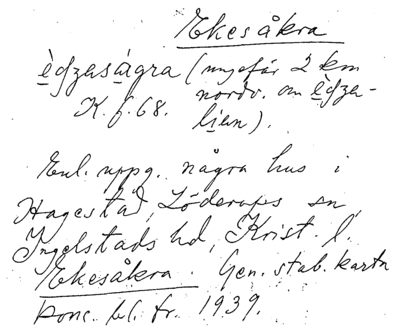 Ekesåkra
è̱dzasá̱gra (ungefär 2 km
K. f. 68. nordv. om è̱dza-
li̱en).
Enl. uppg. några hus i
Hagestad, Löderups sn,
Ingelstads hd, Krist. l.
Ekesåkra. Gen. stab. karta
konc. bl. fr. 1939.